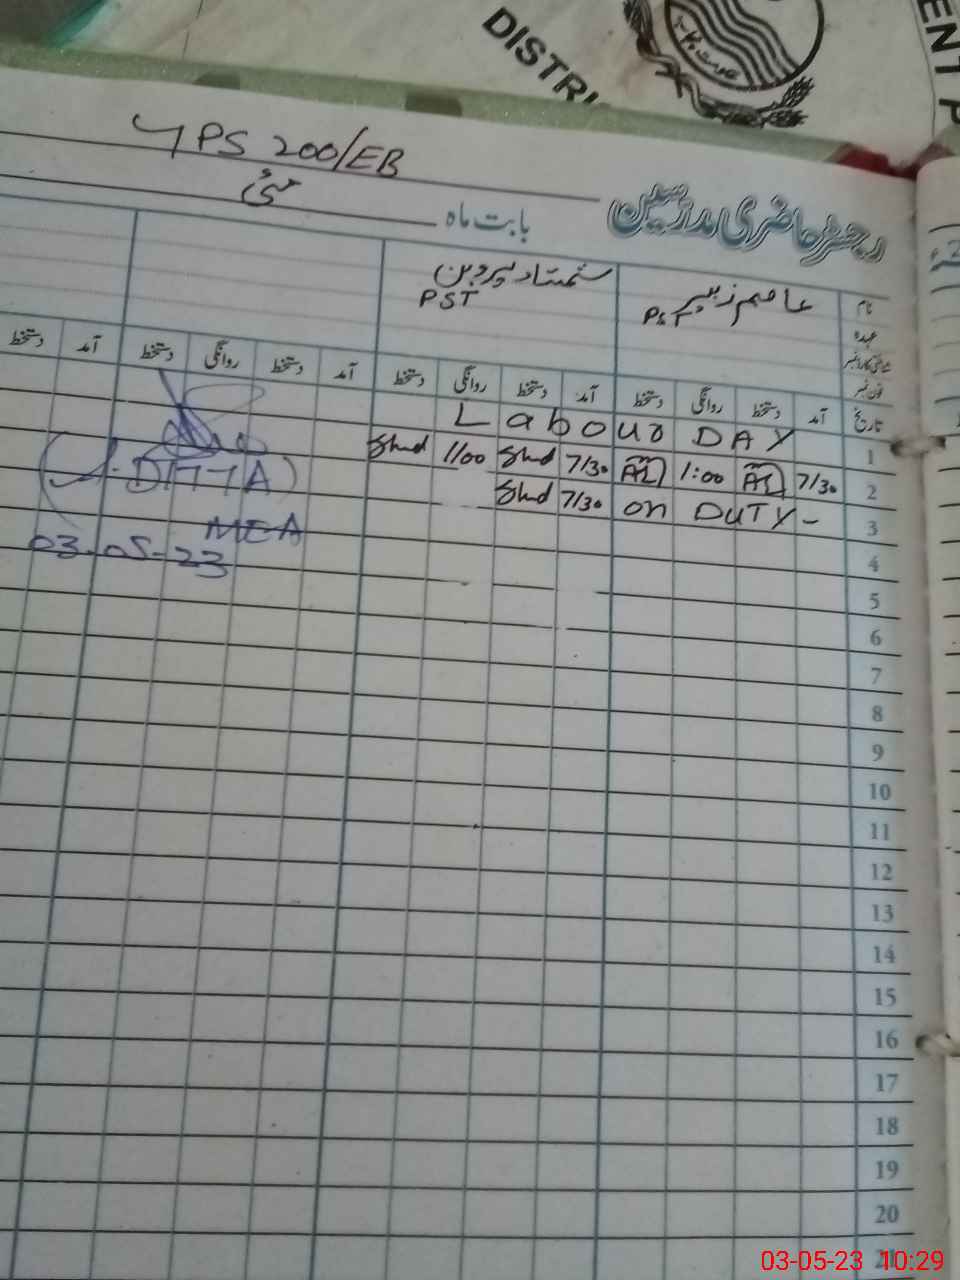 DISTRI
ENT P
PS 200/EB
رجسٹر حاضری مدرسین
بابت ماہ مئی
نام عاصم زبیر شمشاد پروین
عہدہ PST PST
فون نمبر
تاریخ آمد دستخط روانگی دستخط آمد دستخط روانگی دستخط آمد دستخط روانگی دستخط آمد دستخط
1 Labour DAY
2 7/30 1:00 7/30 Shmd 1/00 Shmd
3 on DUTY - 7/30 Shmd
(A. DITTA)
MEA
03-05-23
4
5
6
7
8
9
10
11
12
13
14
15
16
17
18
19
20
21
03-05-23 10:29